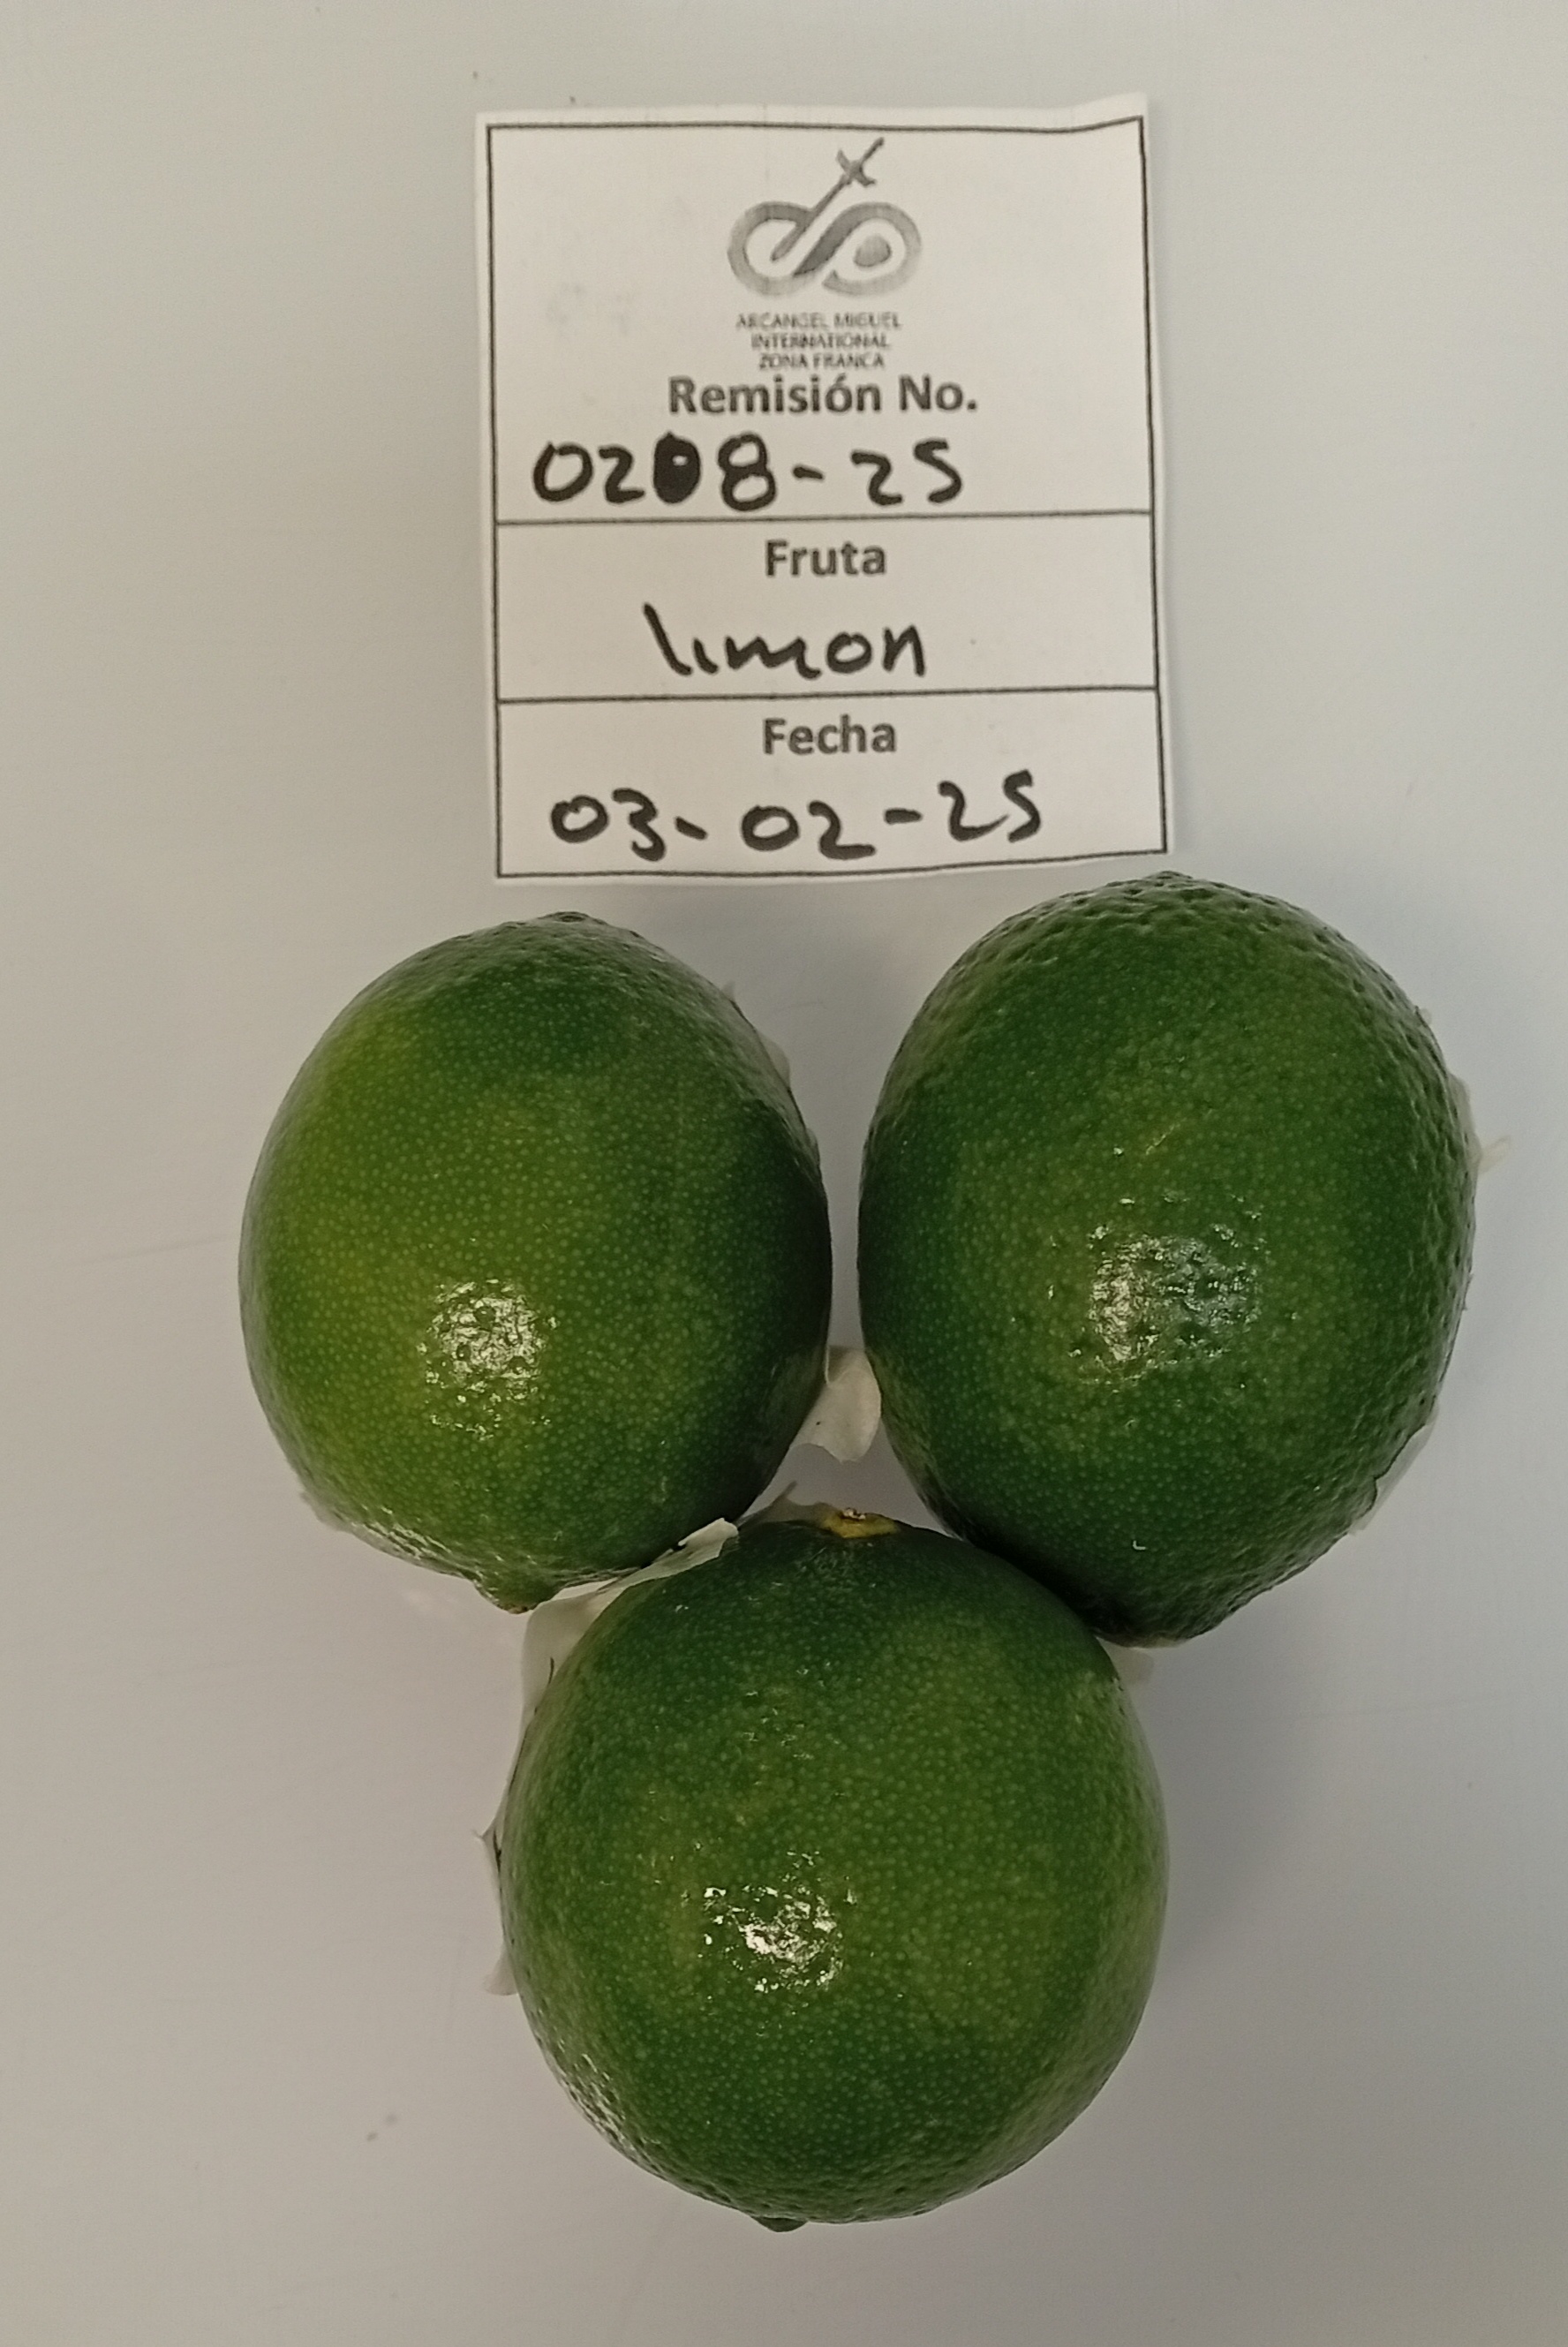 ARCANGEL MIGUEL
INTERNATIONAL
ZONA FRANCA
Remisión No.
0208-25
Fruta
limon
Fecha
03-02-25